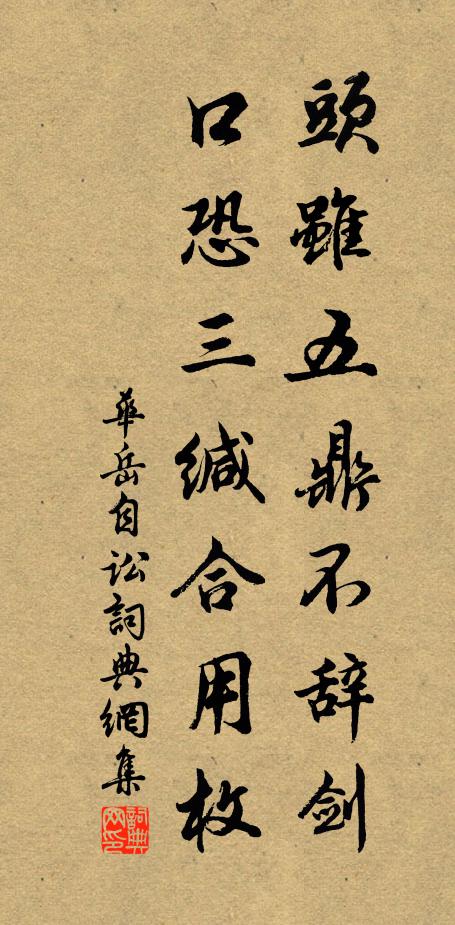 頭雖五鼎不辞剑
口恐三缄合用枚
華岳自訟詞典網集
詞典网印